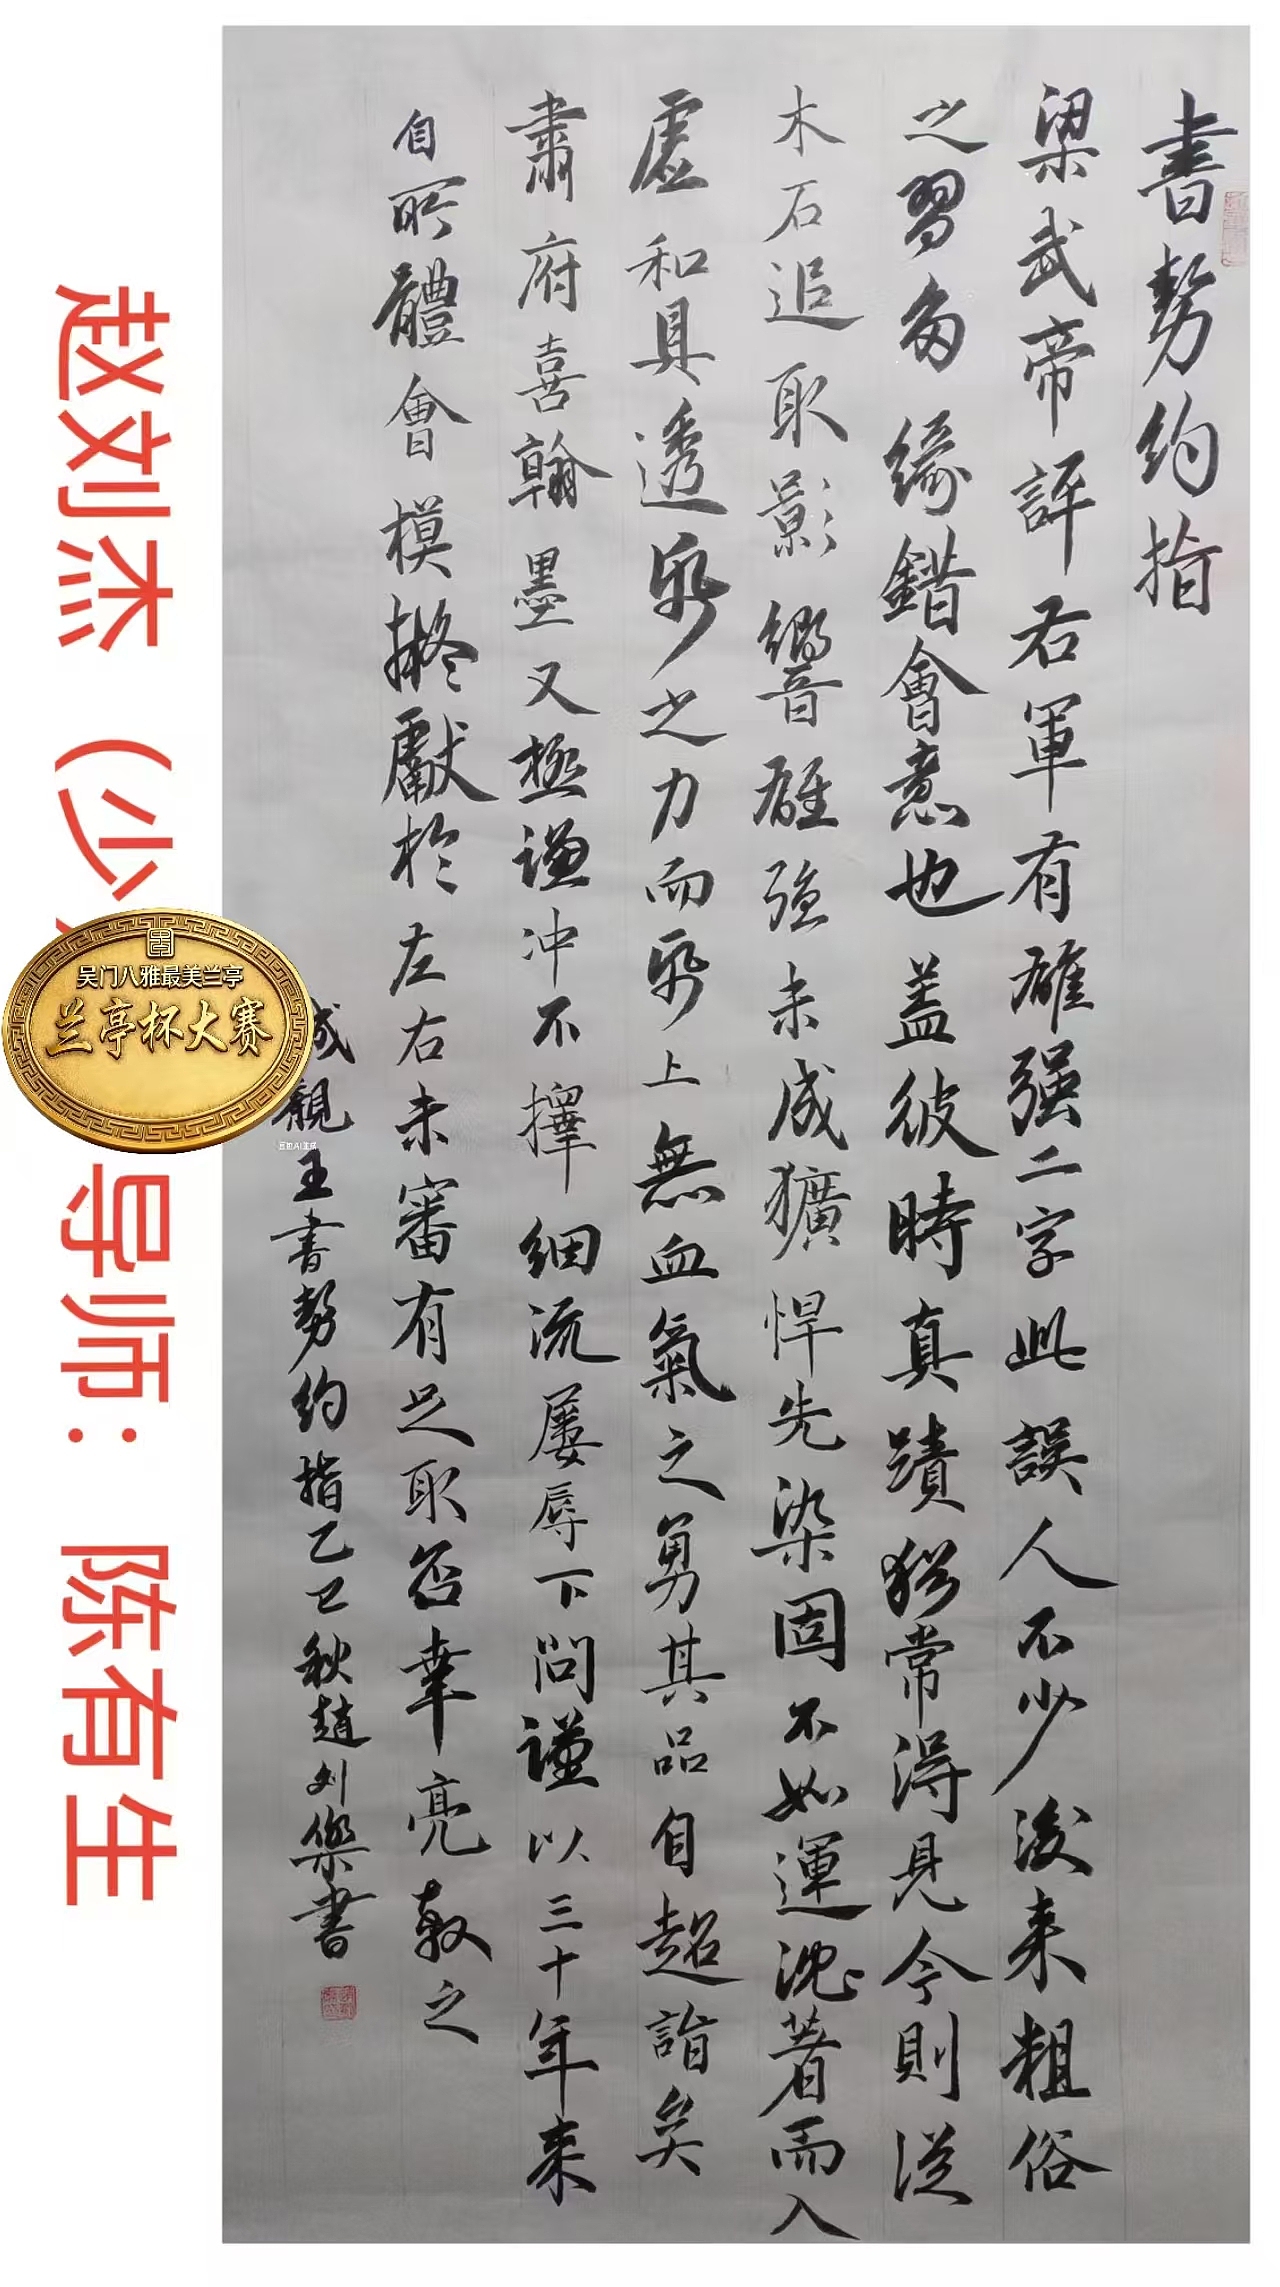 書勢約指
梁武帝評右軍有雄强二字此誤人不少後来粗俗
之習多緣錯會意也蓋彼時真蹟猶常得見今則從
木石追取影響雄强未成獷悍先染固不如運沈著而入
虛和具透紙之力而紙上無血氣之勇其品自超詣矣
肅府喜翰墨又極謙冲不擇細流屢辱下問謹以三十年来
自所體會模擬獻於左右未審有足取否幸亮教之
成親王書勢約指乙巳秋趙刘傑書
赵刘杰（少
导师：陈有生
吴门八雅最美兰亭
兰亭杯大赛
豆包AI生成